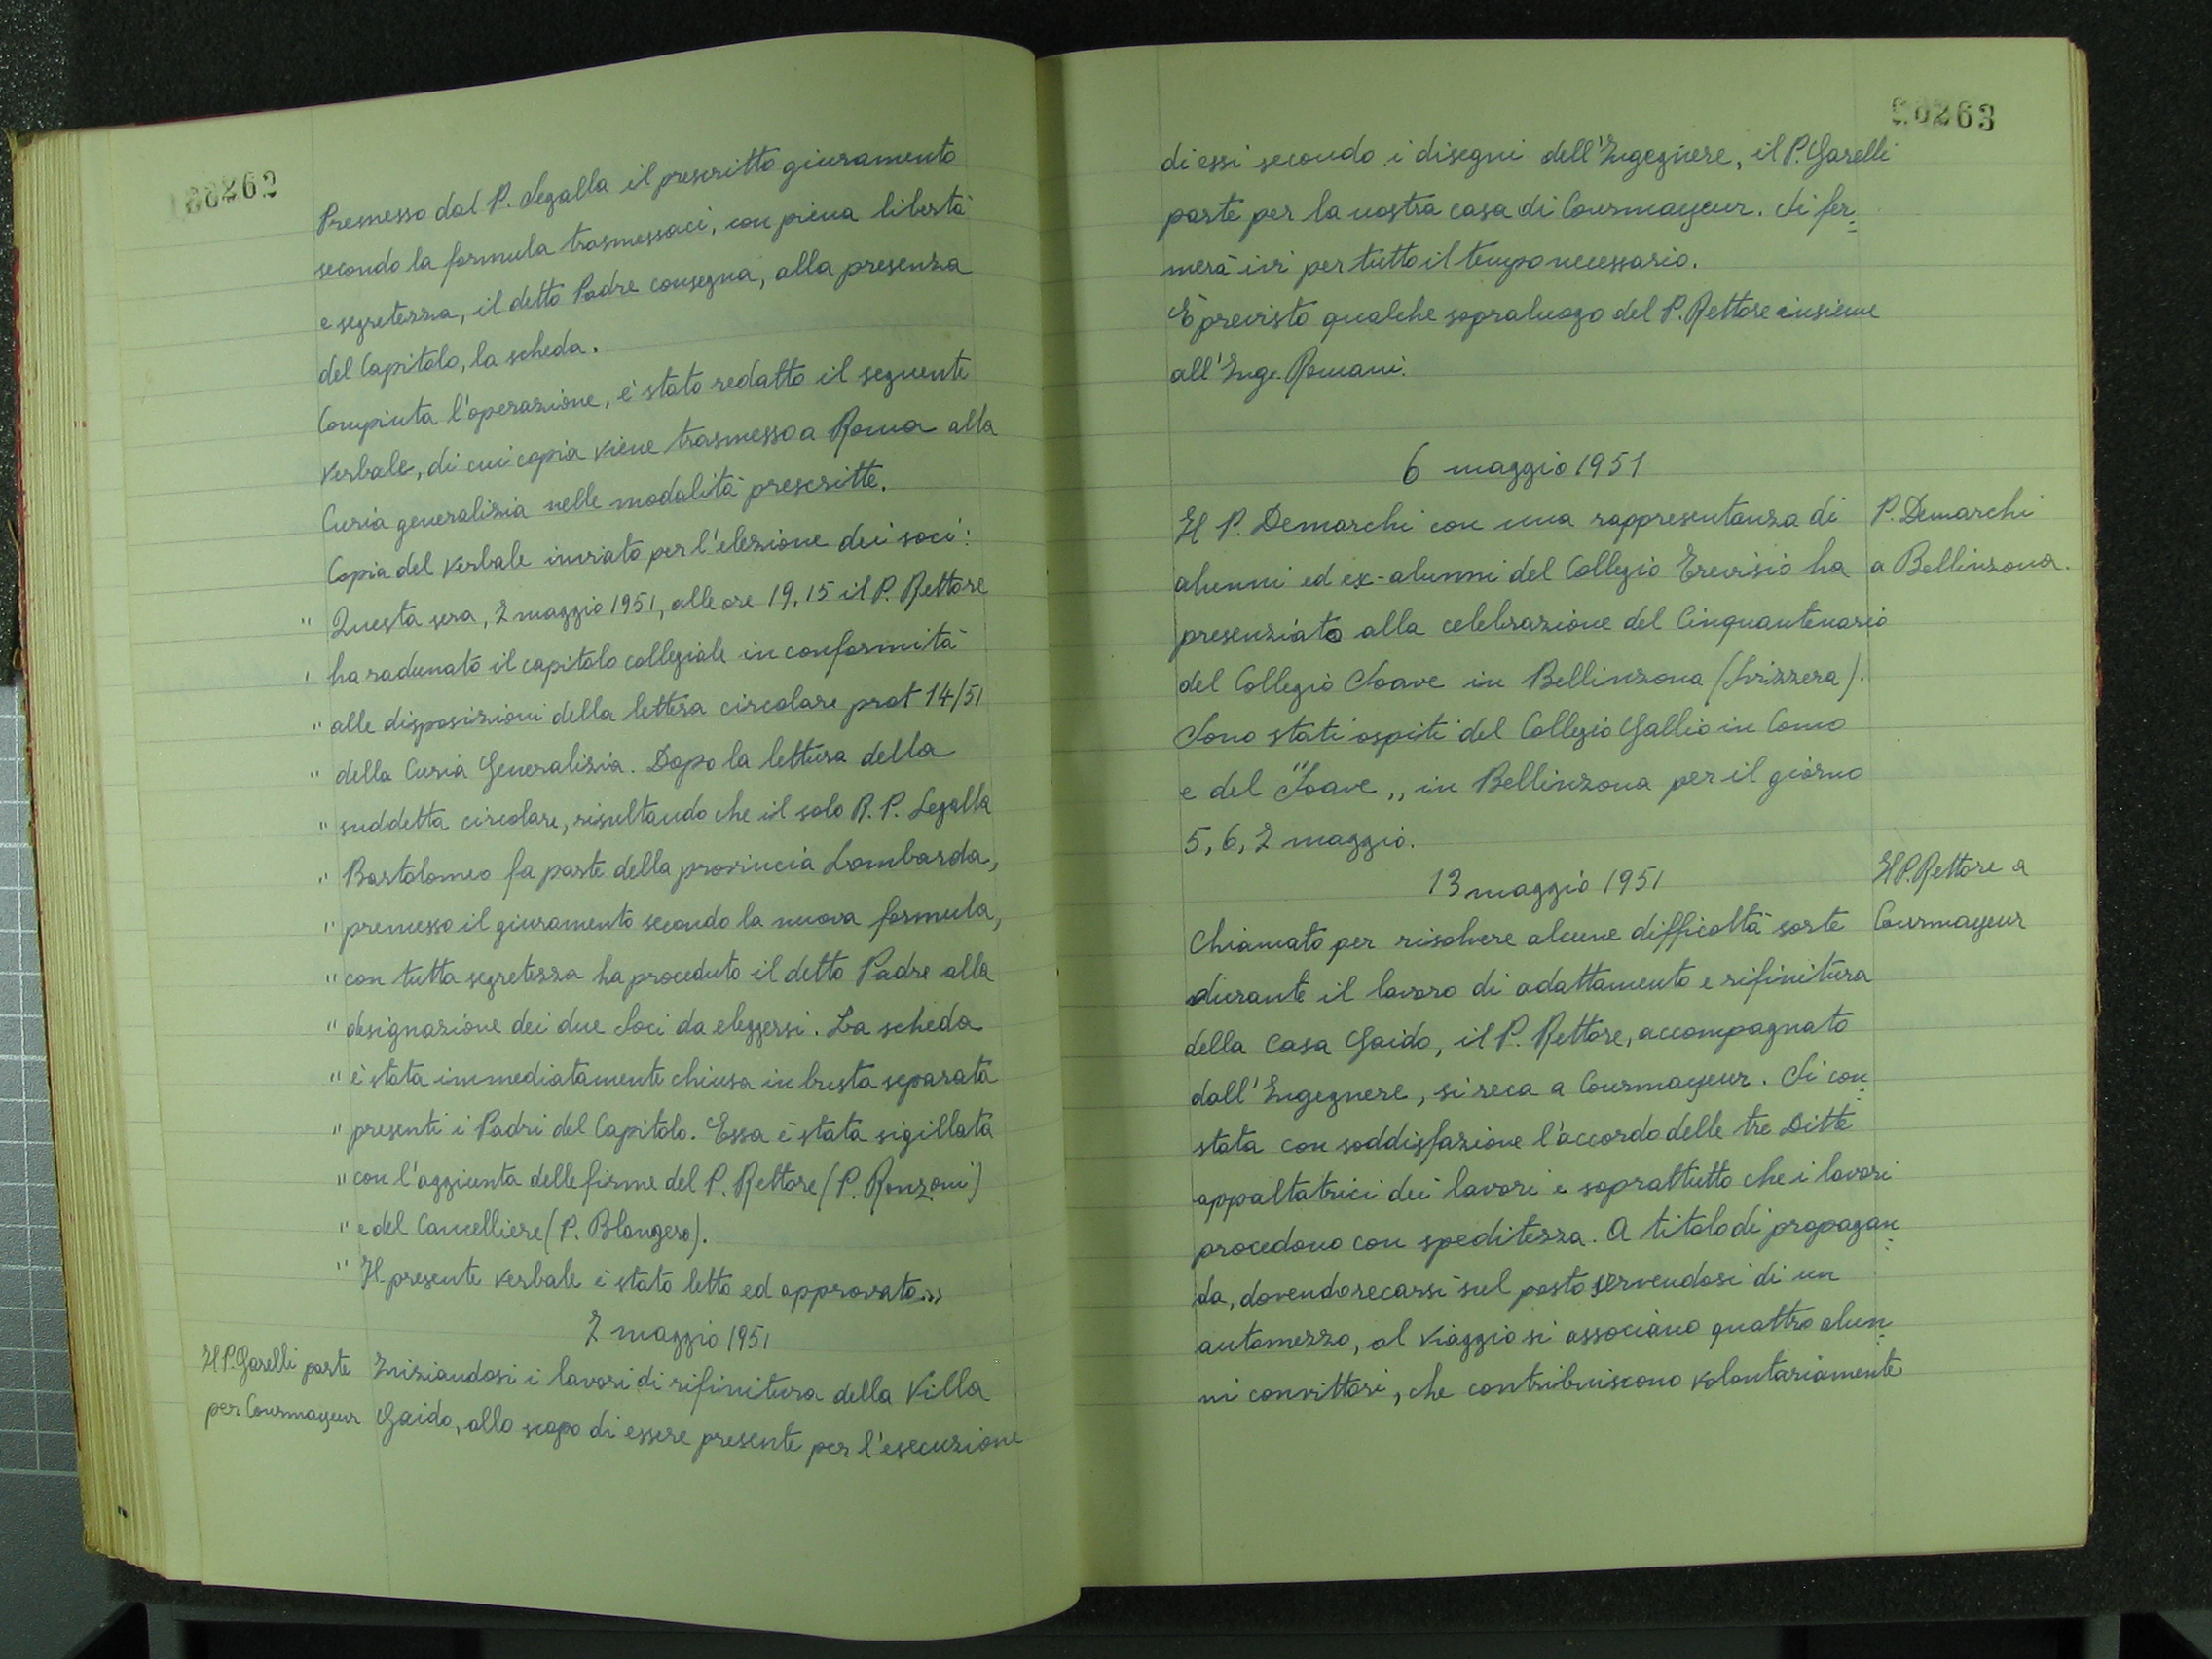 262
Premesso dal P. Segalla il prescritto giuramento
secondo la formula trasmessaci, con piena libertà
e segretezza, il detto Padre consegna, alla presenza
del Capitolo, la scheda.
Compiuta l'operazione, è stato redatto il seguente
Verbale, di cui copia viene trasmesso a Roma alla
Curia generalizia nelle modalità prescritte.
Copia del Verbale inviato per l'elezione dei soci:
" Questa sera, 2 maggio 1951, alle ore 19,15 il P. Rettore
" ha radunato il capitolo collegiale in conformità
" alle disposizioni della lettera circolare prot 14/51
" della Curia Generalizia. Dopo la lettura della
" suddetta circolare, risultando che il solo R. P. Segalla
" Bartolomeo fa parte della provincia Lombarda,
" premesso il giuramento secondo la nuova formula,
" con tutta segretezza ha proceduto il detto Padre alla
" designazione dei due Soci da eleggersi. La scheda
" è stata immediatamente chiusa in busta separata
" presenti i Padri del Capitolo. Essa è stata sigillata
" con l'aggiunta delle firme del P. Rettore (P. Ronzoni)
" e del Cancelliere (P. Blangero).
" Il presente Verbale è stato letto ed approvato.,,
2 maggio 1951
Il P. Garelli parte
per Courmayeur
Iniziandosi i lavori di rifinitura della Villa
Gaido, allo scopo di essere presente per l'esecuzione
263
di essi secondo i disegni dell'Ingegnere, il P. Garelli
parte per la nostra casa di Courmayeur. Si fer=
merà ivi per tutto il tempo necessario.
È previsto qualche sopraluogo del P. Rettore insieme
all'Inge. Romani.
6 maggio 1951
P. Demarchi
a Bellinzona.
Il P. Demarchi con una rappresentanza di
alunni ed ex-alunni del Collegio Trevisio ha
presenziato alla celebrazione del Cinquantenario
del Collegio Soave in Bellinzona (Svizzera).
Sono stati ospiti del Collegio Gallio in Como
e del "Soave,, in Bellinzona per il giorno
5, 6, 7 maggio.
13 maggio 1951
Il P. Rettore a
Courmayeur
Chiamato per risolvere alcune difficoltà sorte
durante il lavoro di adattamento e rifinitura
della Casa Gaido, il P. Rettore, accompagnato
dall'Ingegnere, si reca a Courmayeur. Si con=
stata con soddisfazione l'accordo delle tre Ditte
appaltatrici dei lavori e soprattutto che i lavori
procedono con speditezza. A titolo di propagan=
da, dovendo recarsi sul posto servendosi di un
automezzo, al viaggio si associano quattro alun=
ni convittori, che contribuiscono volontariamente